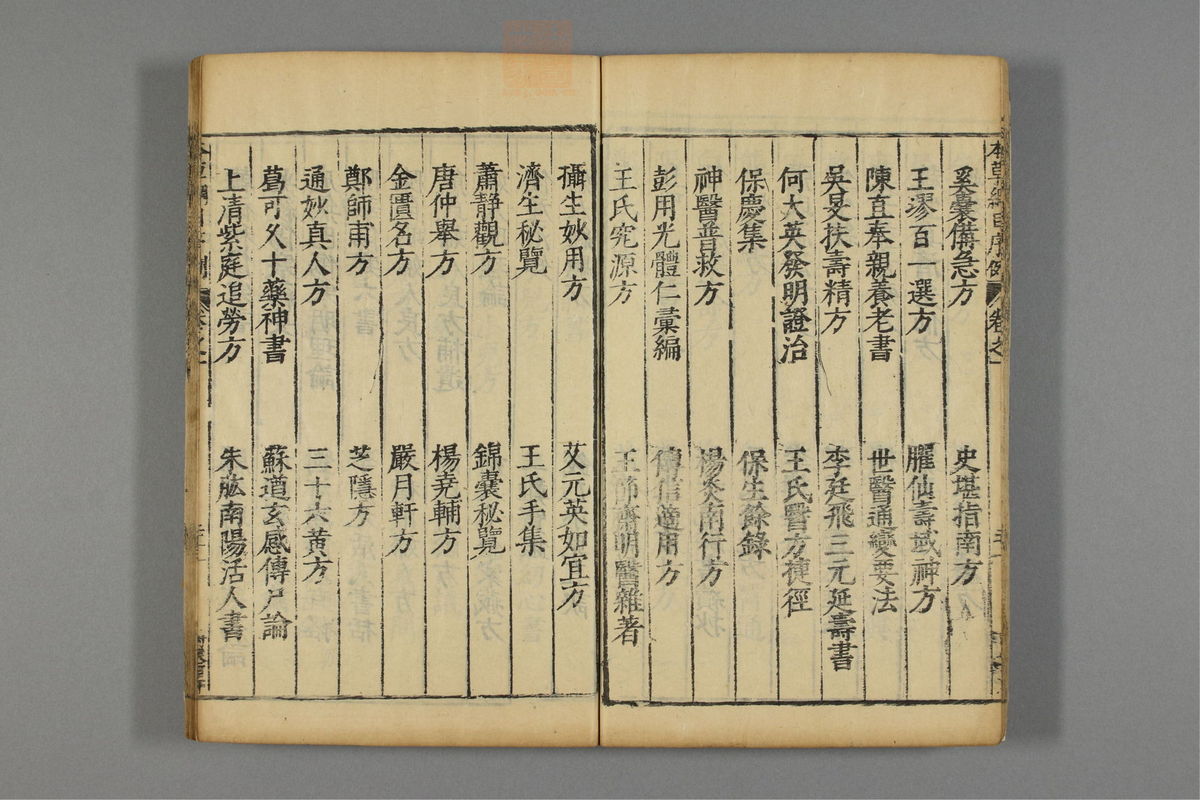 奚囊備急方 史堪指南方
王璆百一選方 臞仙壽域神方
陳直奉親養老書 世醫通變要法
吳旻扶壽精方 李廷飛三元延壽書
何大英發明證治 王氏醫方捷徑
保慶集 保生餘錄
神醫普救方 楊炎南行方
彭用光體仁彙編 傳信適用方
王氏究源方 王節齋明醫雜著
攝生妙用方 艾元英如宜方
濟生秘覽 王氏手集
蕭靜觀方 錦囊秘覽
唐仲舉方 楊堯輔方
金匱名方 嚴月軒方
鄭師甫方 芝隱方
通妙真人方 三十六黃方
葛可久十藥神書 蘇遒玄感傳尸論
上清紫庭追勞方 朱肱南陽活人書